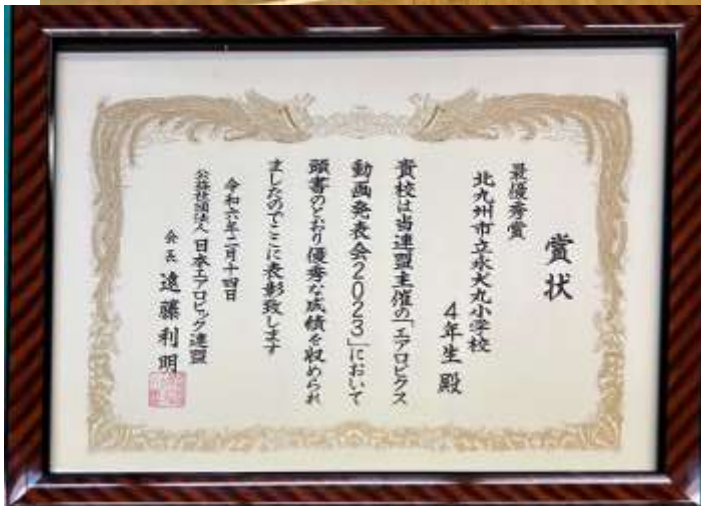 賞状
最優秀賞
北九州市立永犬丸小学校
4年生 殿
貴校は当連盟主催の「エアロビクス
動画発表会2023」において
頭書のとおり優秀な成績を収められ
ましたのでここに表彰致します
令和六年二月十四日
公益社団法人 日本エアロビック連盟
会長 遠藤利明